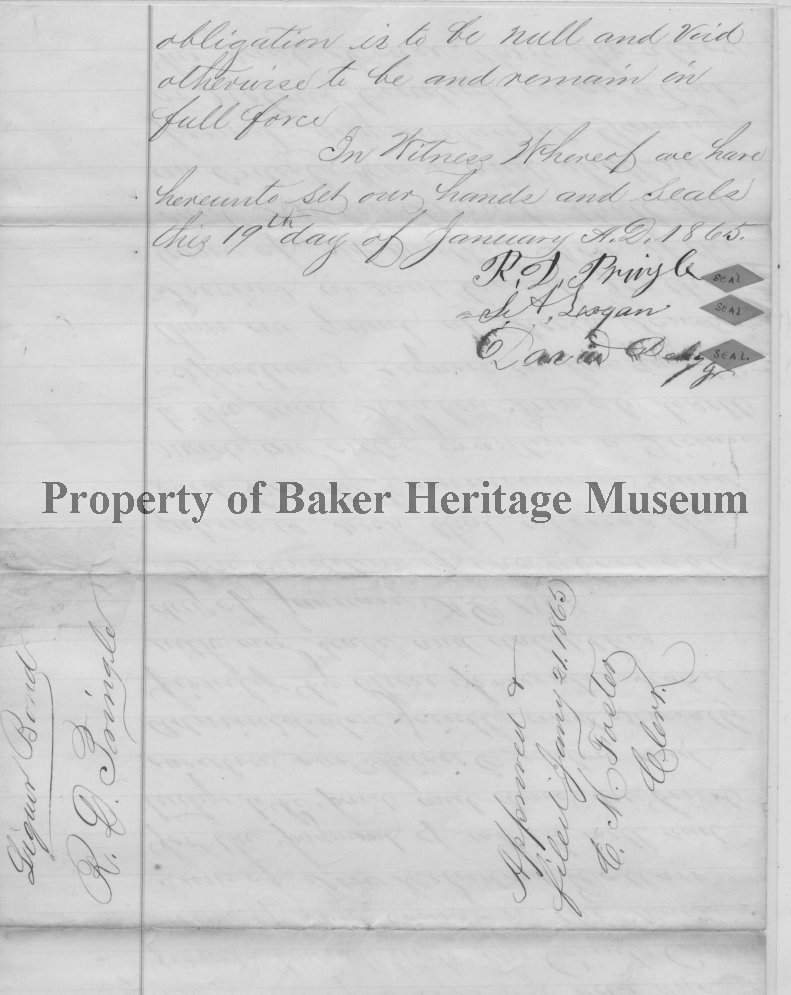 obligation is to be null and void
otherwise to be and remain in
full force
In Witness Whereof we have
hereunto set our hands and seals
this 19th day of January A.D. 1865.
R. D. Pringle SEAL
S. A. Logan SEAL
David SEAL.
Property of Baker Heritage Museum
Liquor Bond
R. D. Pringle
Approved &
filed Jany 21. 1865
C. M. Foster
Clerk.